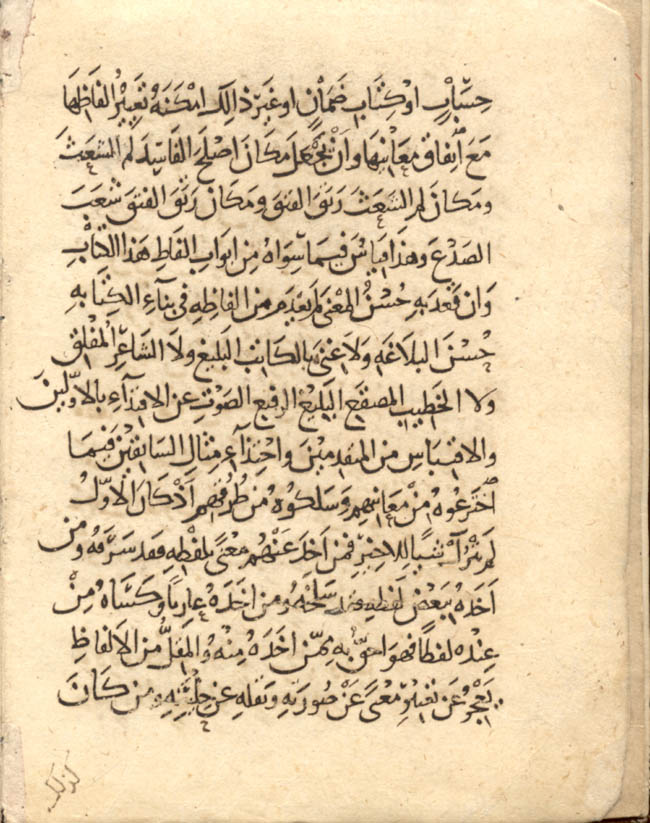 حِسَابٍ اوكِتَابِ ضَمَانٍ اوغَيْرِ ذالِكَ امْكَنَهُ تَغْيِيْرُ الفَاظِهَا
مَعَ اتِفَاقِ مَعَانِيْهَا وَاَنْ يَجْعَلَ مَكَانَ اَصْلَحَ الفَاسِدَ لَمَّ الشَعَثَ
ومَكانَ لم الشَعَثَ رَتَقَ الفتقَ ومَكانَ رَتَقَ الفتقَ شَعَبَ
الصَدْعَ وهَذا قِيَاسٌ فيمَا سِوَاهُ مِن ابوابِ الفاظِ هَذا الكِتَابِ
وَان قَعَدَ بِهِ حُسْنُ المعْنَى لم يعْدَم من الفاظِهِ فى بنَاءِ الكِتَابهِ
حُسْنَ البَلاغَه ولاغِنَى بالكاتِبِ البَليغِ ولا الشاعِرِ المُفْلِقِ
ولا الخطيب المصقعِ البَليْغ الرفيعِ الصَوْتِ عن الاقتدآءِ بالاوّلينَ
والاقتبَاسِ من المتقدمينَ واحتِذآءِ مِثالِ السَابقيْنَ فيمَا
اخترعُوهُ مِنْ مَعانيهِم وَسَلكوُهُ مِن طُرقهِم اذْ كانَ الاوّلُ
لم يتْرُكْ شيًا للاخِيْرِ فمن اخَذَ عَنْهُم مَعْنىً بلفْظِهِ فقد سَرَقهُ ومن
اخَذهُ بِبَعْض لفظِهِ فقد سَلخَهُ ومن اخَذهُ عارِيًا وكسَاهُ مِنْ
عِنْدِه لفظًا فهوَاحقّ به مِمّن اخَذَهُ مِنْهُ والمُقلُّ من الالفاظِ
يَعْجِزُ عَن تغييْرِ مَعْنىً عَنْ صُورَتِهِ وَنَقلِهِ عن حِلْيَتِهِ ومن كَانَ
كذلك